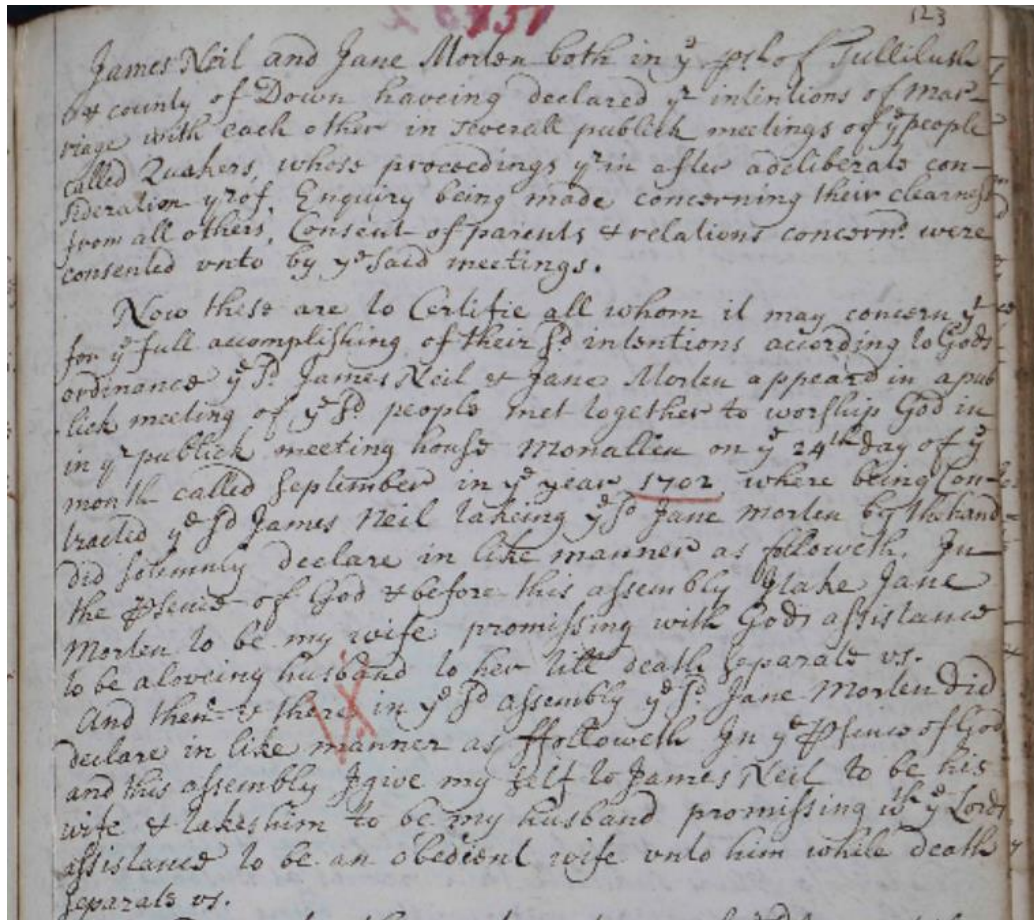 123
James Neil and Jane Morten both in yᵉ psh of Tullilush
& county of Down haveing declared yʳ intentions of mar-
riage with each other in severall publick meetings of yᵉ people
called Quakers, whose proceedings yʳin after a deliberate con-
sideration yʳof, Enquiry being made concerning their clearness
from all others, Consent of parents & relations concernᵈ were
consented vnto by yᵉ said meetings.
Now these are to Certifie all whom it may concern yᵗ
for yᵉ full accomplishing of their sᵈ intentions according to Gods
ordinance yᵉ sᵈ James Neil & Jane Morten appeard in a pub
lick meeting of yᵉ sᵈ people met together to worship God in
in yʳ publick meeting house Monallen on yᵉ 24ᵗʰ day of yᵉ
month called September in yᵉ year 1702 where being Con-
tracted yᵉ sᵈ James Neil takeing yᵉ sᵈ Jane Morten by the hand
did solemnly declare in like manner as followeth. In
the psence of God & before this assembly I take Jane
Morten to be my wife promissing with Gods assistance
to be a loveing husband to her till death separate vs.
And then & there in yᵉ sᵈ assembly yᵉ sᵈ Jane Morten did
declare in like manner as ffolloweth In yᵉ psence of God
and this assembly I give my self to James Neil to be his
wife & takes him to be my husband promissing wᵗʰ yᵉ Lords
assistance to be an obedient wife vnto him while death
separate vs.